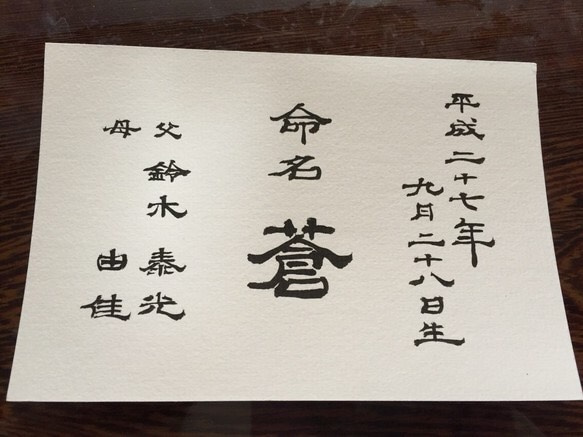 平成二十七年
九月二十八日生
命名 蒼
父 鈴木 泰光
母 由佳